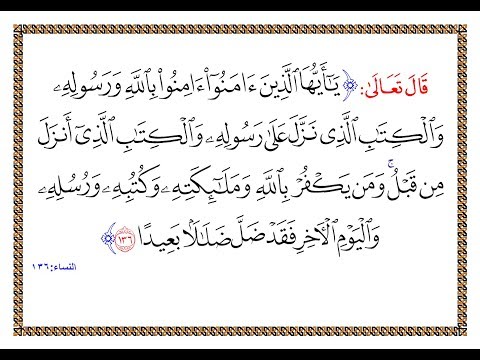 قَالَ تَعَالَىٰ: ﴿ يَـٰٓأَيُّهَا ٱلَّذِينَ ءَامَنُوٓا۟ ءَامِنُوا۟ بِٱللَّهِ وَرَسُولِهِۦ
وَٱلْكِتَـٰبِ ٱلَّذِى نَزَّلَ عَلَىٰ رَسُولِهِۦ وَٱلْكِتَـٰبِ ٱلَّذِىٓ أَنزَلَ
مِن قَبْلُ ۚ وَمَن يَكْفُرْ بِٱللَّهِ وَمَلَـٰٓئِكَتِهِۦ وَكُتُبِهِۦ وَرُسُلِهِۦ
وَٱلْيَوْمِ ٱلْـَٔاخِرِ فَقَدْ ضَلَّ ضَلَـٰلًۢا بَعِيدًا ١٣٦ ﴾
النساء: ١٣٦